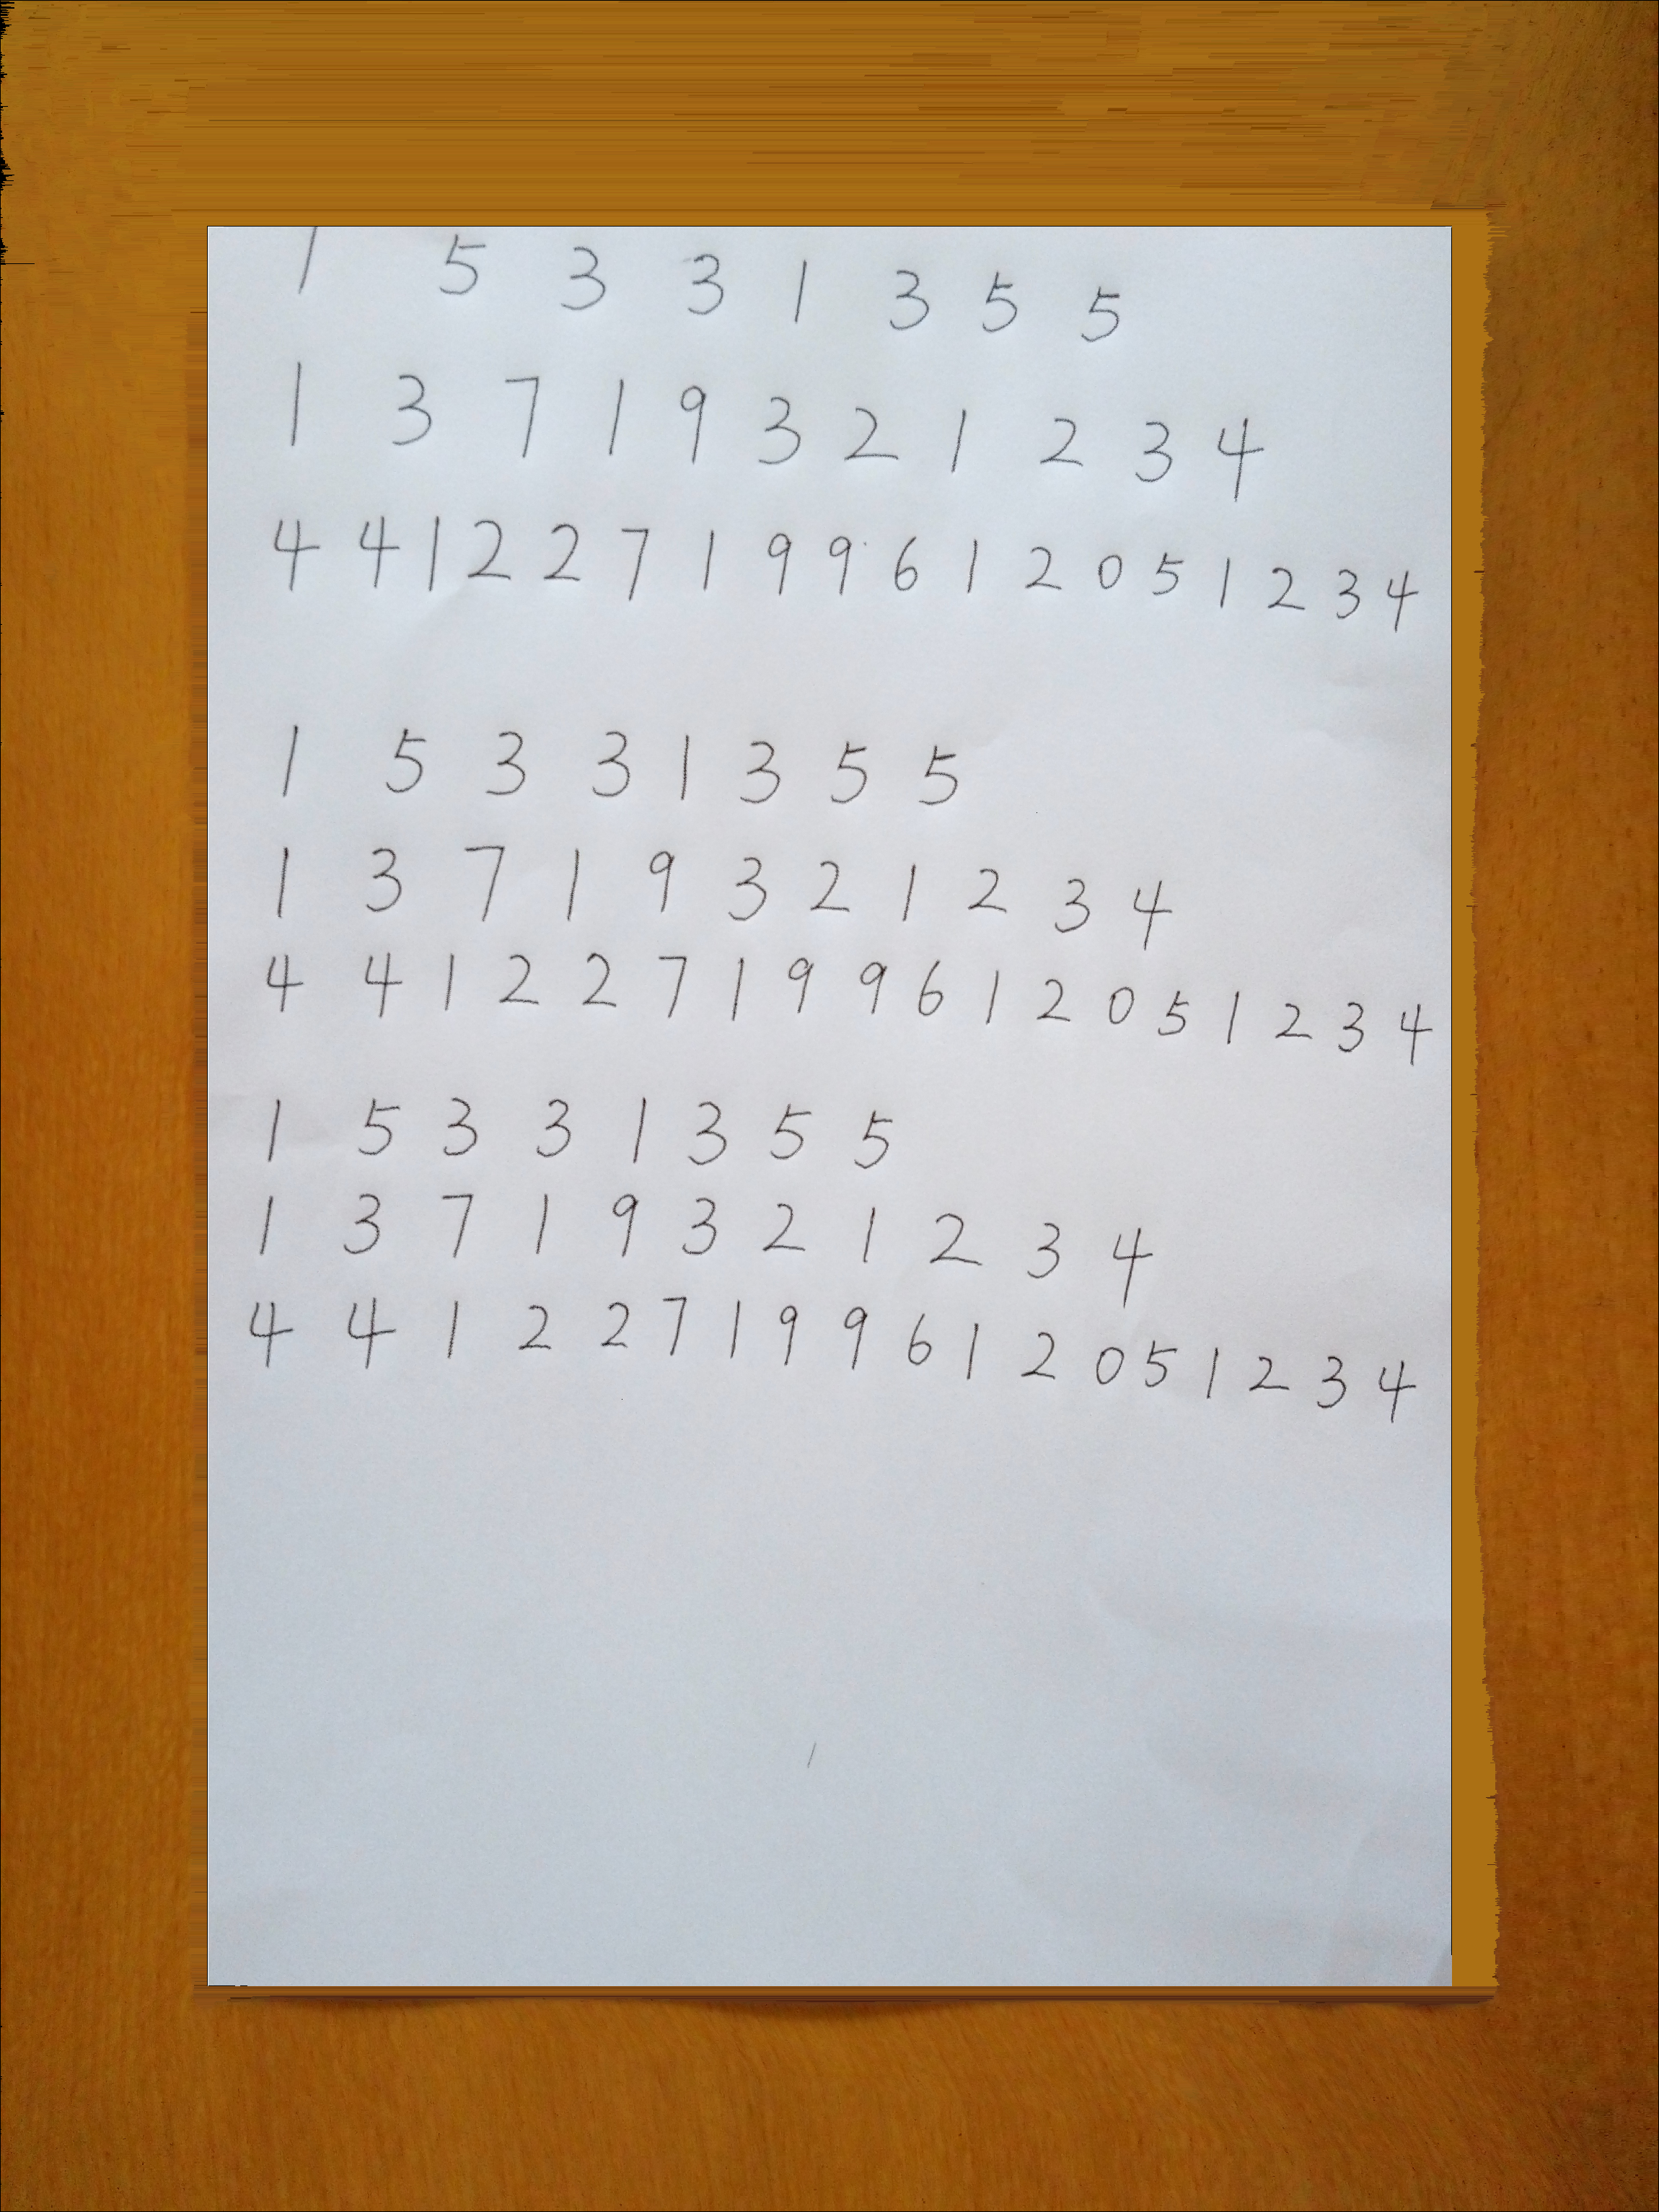 1 5 3 3 1 3 5 5
1 3 7 1 9 3 2 1 2 3 4
4 4 1 2 2 7 1 9 9 6 1 2 0 5 1 2 3 4
1 5 3 3 1 3 5 5
1 3 7 1 9 3 2 1 2 3 4
4 4 1 2 2 7 1 9 9 6 1 2 0 5 1 2 3 4
1 5 3 3 1 3 5 5
1 3 7 1 9 3 2 1 2 3 4
4 4 1 2 2 7 1 9 9 6 1 2 0 5 1 2 3 4